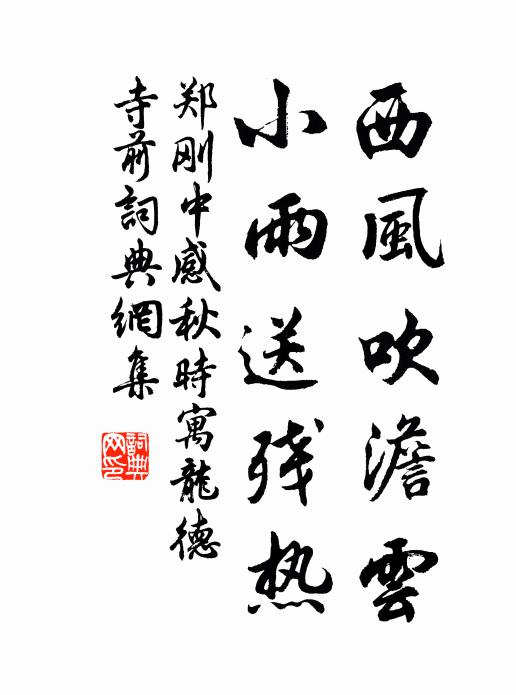 西風吹澹雲
小雨送残热
郑刚中感秋時寓龍德
寺前詞典網集
詞典網印